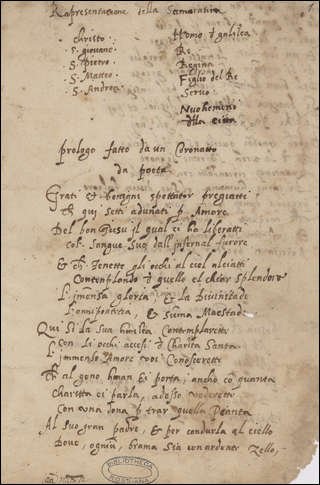 Rapresentatione della Samaritana
Christo. Homo d galilea
S. giovane. Re
S. Pietro. Regina
S. Matteo. Figlio del Re
S. Andrea Servo
Nuohomeni
dlla citta
prologo fatto da un Coronato
da poeta
Grati et benigni spettator pregiatti
ch qui setti adunati p Amore
Del bon Giesu il qual ci ha liberatti
col Sangue Suo dall infernal furore
& ch Tenette gli occhi al ciel alciatti
Contemplando d quello el chiar splendore
L imensa gloria & la Divinitade
L onnipotentia, & Suma Maestade
Qui Si la Sua himilta Contemplarette
Con Li occhi accesi d Charita Santa
L immenso Amore voi Conoscerette
Ch al geno human ei porta, ancho co quanta
Charetta ei parla, adesso vederette
Con una dona p trar quella Pianta
Al Suo gran padre, & per condurla al ciello
Dove, ogniu, brama Sia con ardente Zello,
BIBLIOTHECA